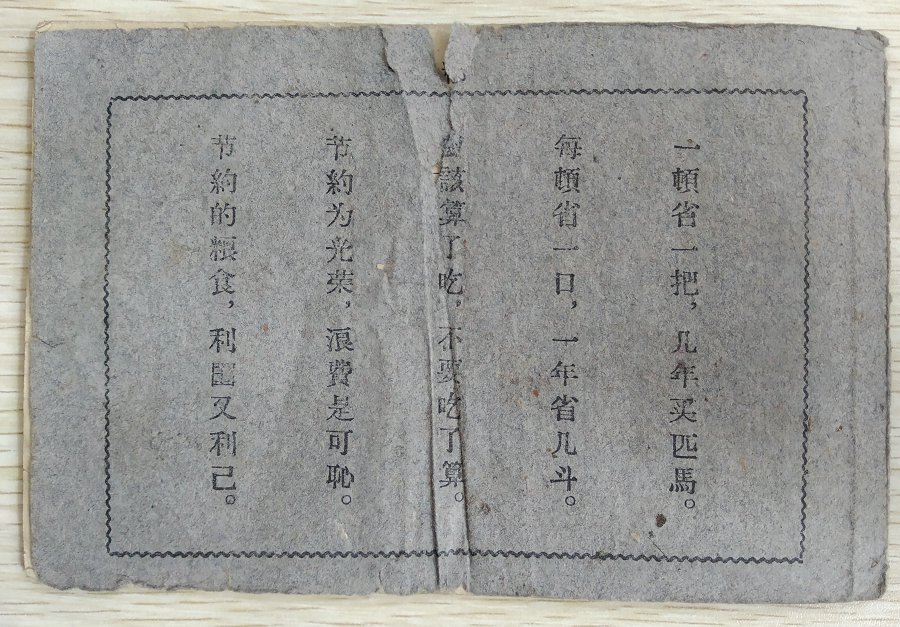 一頓省一把，几年买匹馬。
每頓省一口，一年省几斗。
該算了吃，不要吃了算。
节約为光荣，浪費是可恥。
节約的粮食，利国又利己。